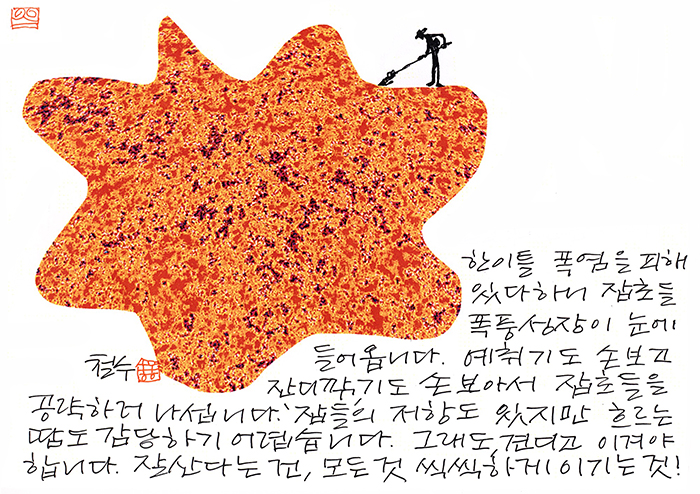 한이틀 폭염을 피해
있다하니 잡초들
폭풍성장이 눈에
들어옵니다. 예취기도 손보고
철수
잔디깎기도 손보아서 잡초들을
공략하러 나섭니다. '잡들'의 저항도 있지만 흐르는
땀도 감당하기 어렵습니다. 그래도, 견디고 이겨야
합니다. 잘산다는건, 모든것 씩씩하게 이기는 것!